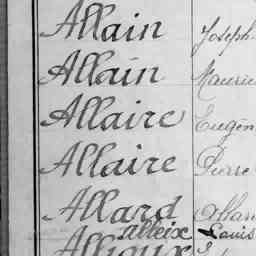 Allain Joseph
Allain Maurice
Allaire Eugèn
Allaire Pierre
Allard
Alleix Louis
Allioux